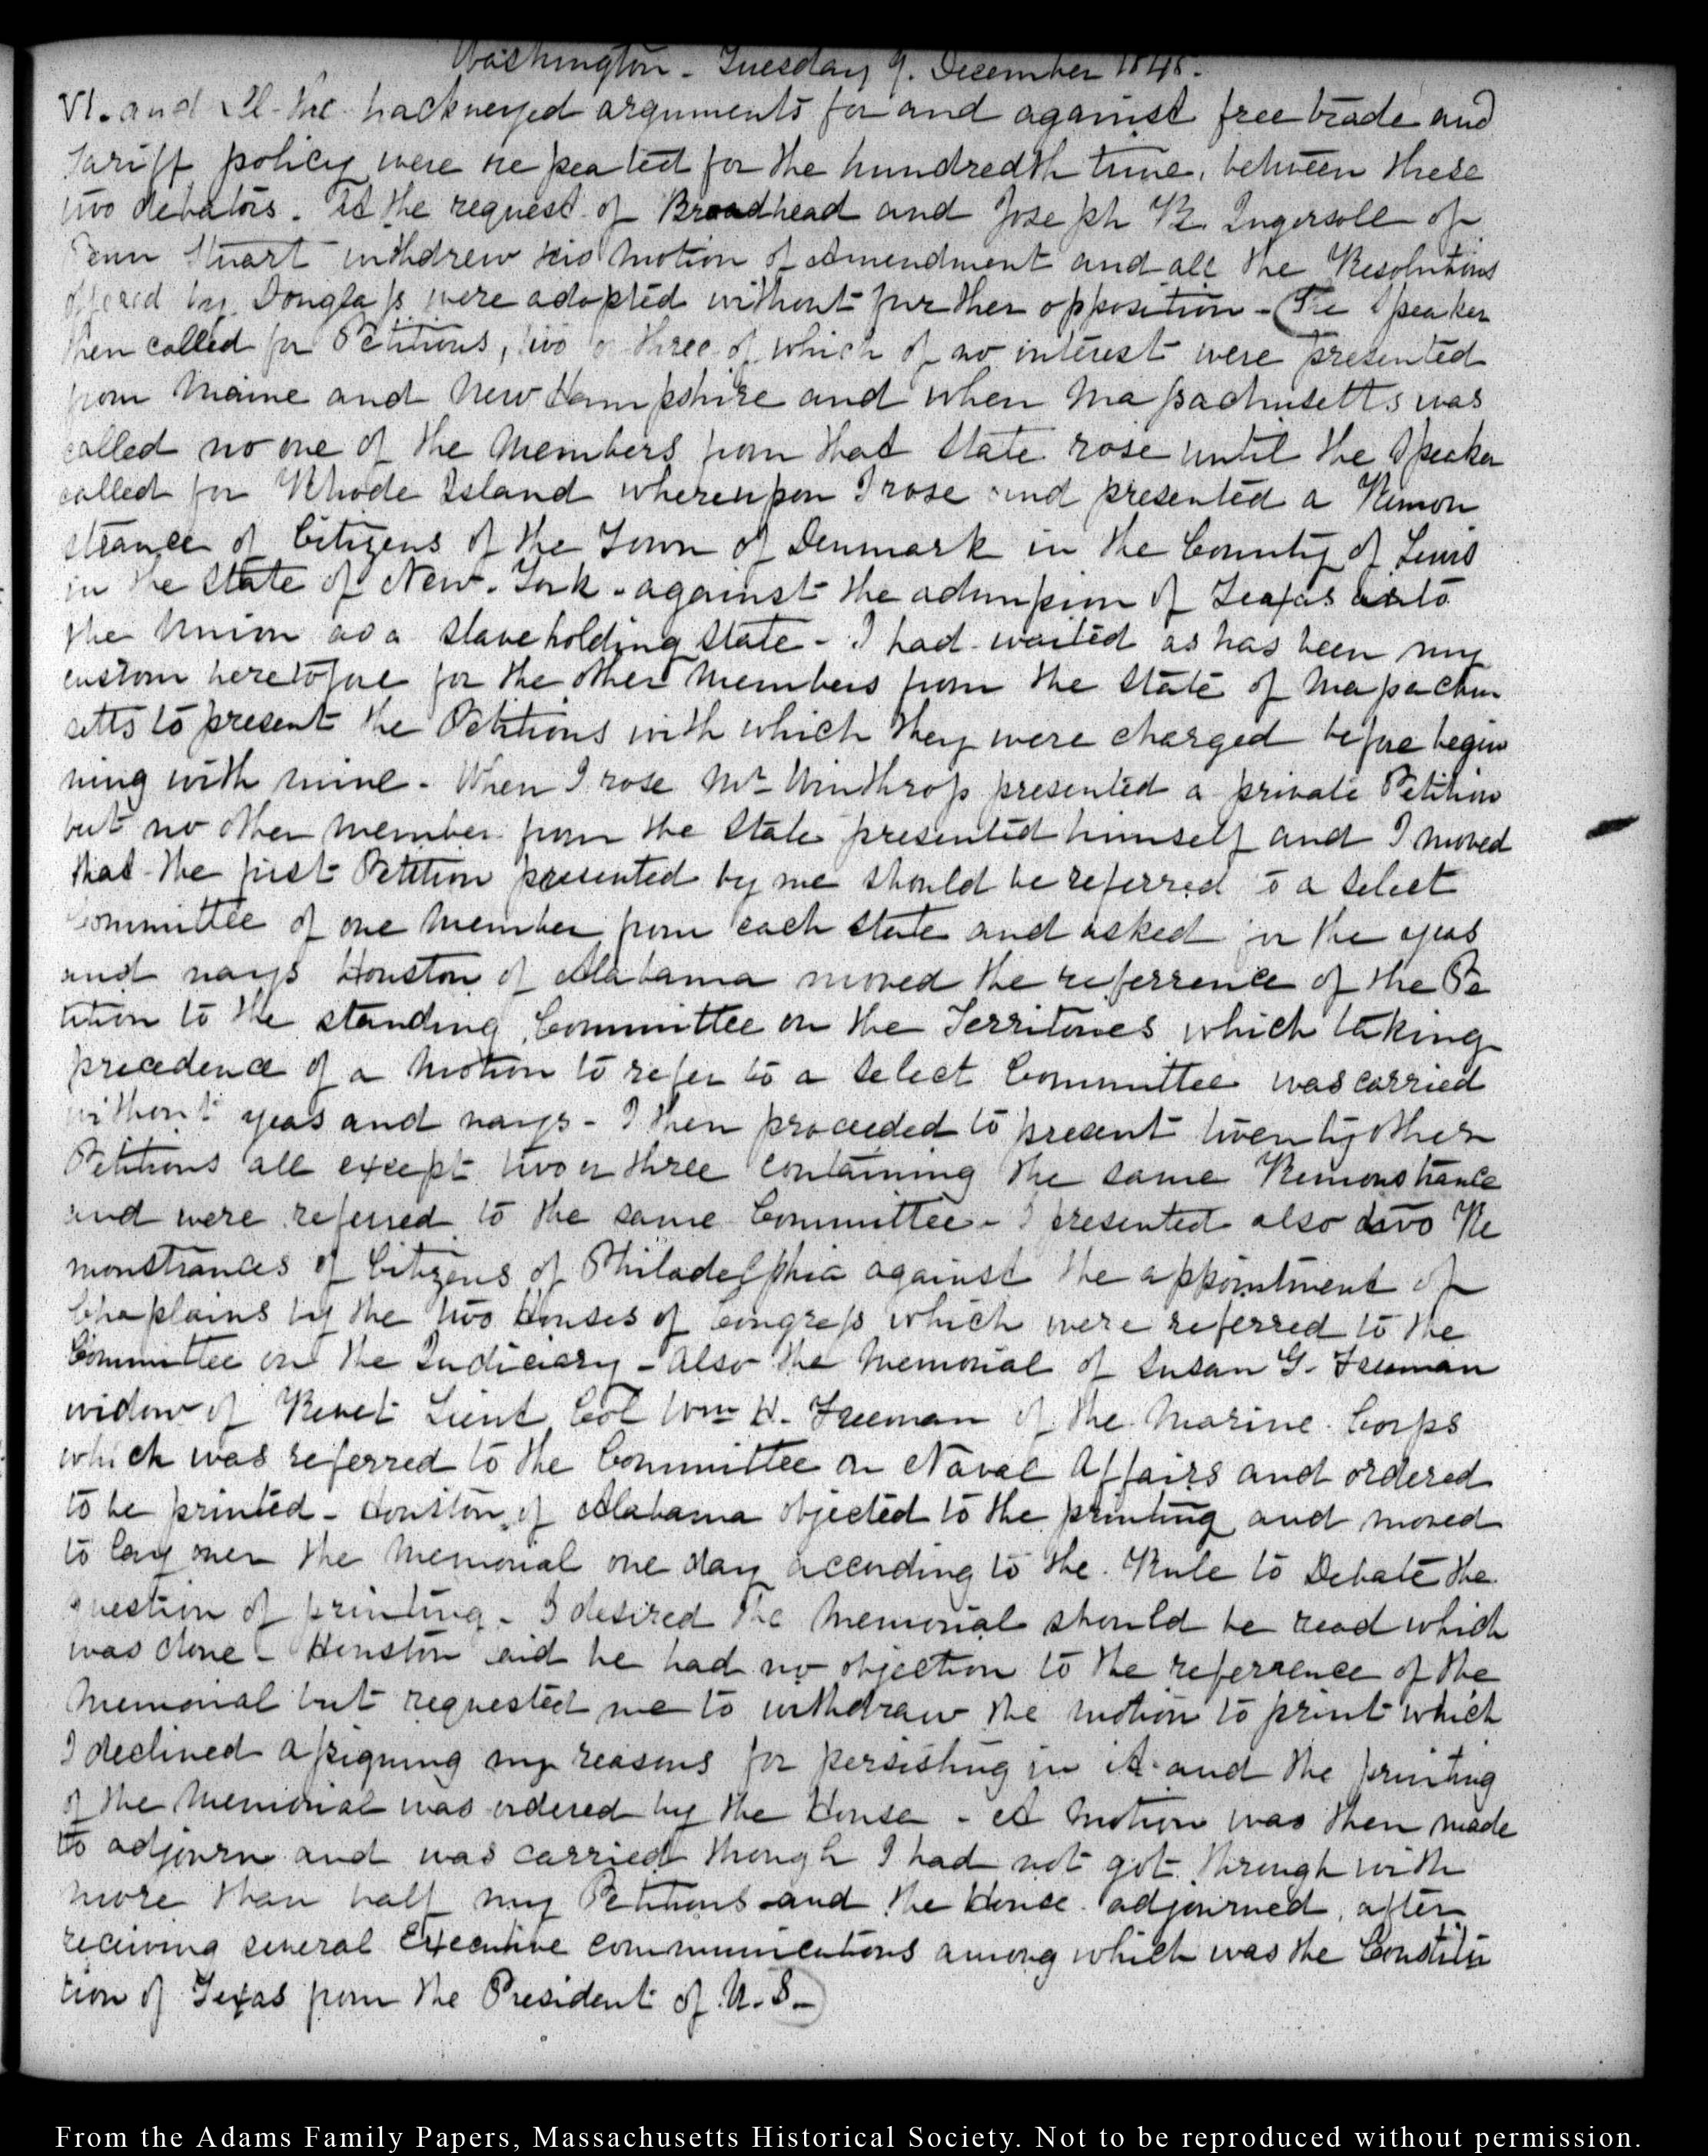 Washington - Tuesday 9. December 1845.
VI. and the hackneyed arguments for and against free trade and
tariff policy were repeated for the hundredth time, between these
two debators. At the request of Broadhead and Joseph R. Ingersoll of
Penn Stuart withdrew his motion of Amendment and all the Resolutions
offered by Douglass were adopted without further opposition - (The Speaker
then called for Petitions, two or three of which of no interest were presented
from Maine and New Hampshire and when Massachusetts was
called no one of the Members from that State rose until the Speaker
called for Rhode Island whereupon I rose and presented a Remon
strance of Citizens of the Town of Denmark in the County of Lewis
in the State of New-York - against the admission of Texas into
the Union as a slaveholding State - I had waited as has been my
custom heretofore for the other Members from the State of Massachu
setts to present the Petitions with which they were charged before begin
ning with mine - When I rose Mr Winthrop presented a private Petition
but no other member from the State presented himself and I moved
that the first Petition presented by me should be referred to a select
Committee of one Member from each State and asked for the yeas
and nays Houston of Alabama moved the referrence of the Pe
tition to the standing Committee on the Territories which taking
precedence of a motion to refer to a select Committee was carried
without yeas and nays - I then proceeded to present twenty other
Petitions all except two or three containing the same Remonstrance
and were referred to the same Committee - I presented also two Re
monstrances of Citizens of Philadelphia against the appointment of
Chaplains by the two Houses of Congress which were referred to the
Committee on the Judiciary - also the Memorial of Susan G. Freeman
widow of Brevet Lieut Col Wm H. Freeman of the Marine Corps
which was referred to the Committee on Naval Affairs and ordered
to be printed - Houston of Alabama objected to the printing and moved
to lay over the Memorial one day according to the Rule to Debate the
question of printing - I desired the Memorial should be read which
was done - Houston said he had no objection to the referrence of the
Memorial but requested me to withdraw the motion to print which
I declined assigning my reasons for persisting in it and the printing
of the Memorial was ordered by the House - A motion was then made
to adjourn and was carried though I had not got through with
more than half my Petitions and the House adjourned, after
receiving several Executive communications among which was the Constitu
tion of Texas from the President of U.S -)
From the Adams Family Papers, Massachusetts Historical Society. Not to be reproduced without permission.